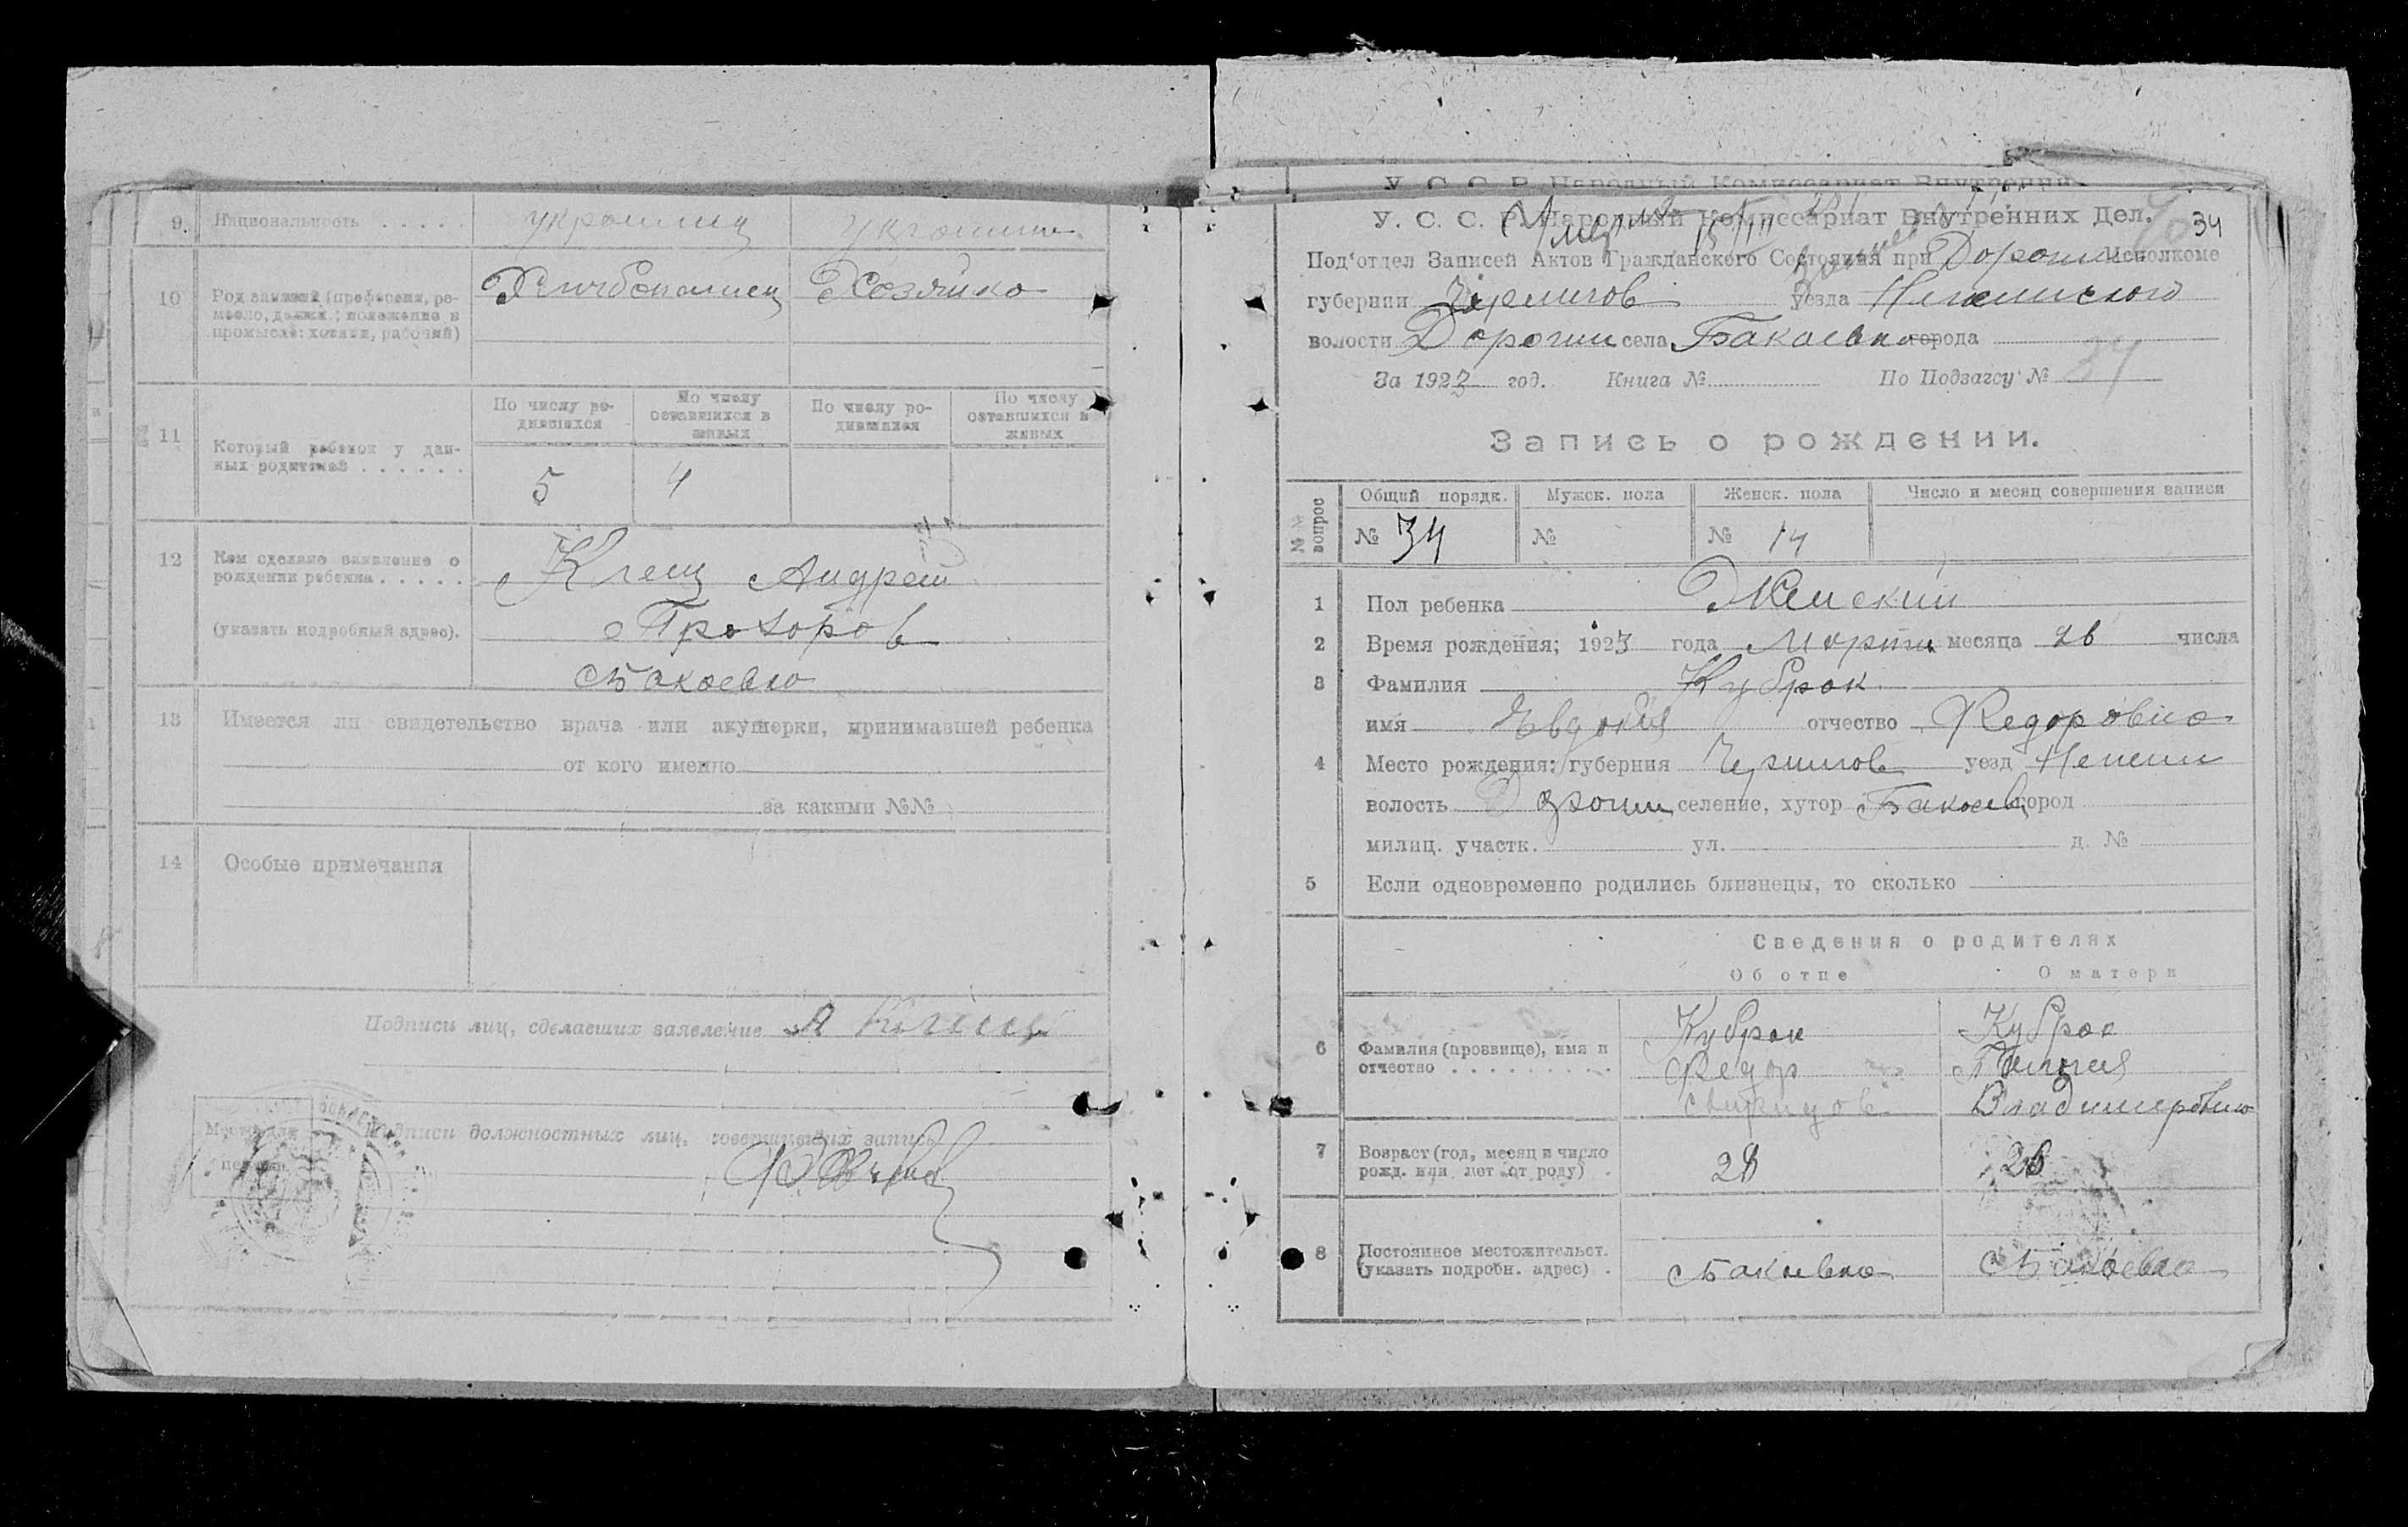 9. Национальность . . . . . украинец украинка
10 Род занятий (профессия, ре- Хлебопашец Хозяйка
месло, должн.; положение в
промысле: хозяин, рабочий)
По числу ро- По числу По числу ро- По числу
дившихся оставшихся в дившихся оставшихся в
живых живых
11 Который ребенок у дан-
ных родителей . . . . . . 5 4
12 Кем сделано заявление о Клещ Андрей
рождении ребенка . . . . .
(указать подробный адрес). Прохоров
Бакаевка
13 Имеется ли свидетельство врача или акушерки, принимавшей ребенка
от кого именно
за какими №№
14 Особые примечания
Подписи лиц, сделавших заявление А Клещ
Место для
печати
Подписи должностных лиц, совершивших запись
У. С. С. Р. Народный Комиссариат Внутренних
У. С. С. Р. Народный Комиссариат Внутренних Дел. 34
Под'отдел Записей Актов Гражданского Состояния при Дорогин Исполкоме
губернии Чернигов уезда Нежинского
волости Дорогин села Бакаевка города
За 1923 год. Книга № По Подзагсу № 34
Запись о рождении.
№№ вопрос Общий порядк. Мужск. пола Женск. пола Число и месяц совершения записи
№ 34 № № 14
1 Пол ребенка Женский
2 Время рождения; 1923 года Марта месяца 26 числа
3 Фамилия Кубрак
имя Евдокия отчество Федоровна
4 Место рождения: губерния Чернигов уезд Нежин
волость Дрогин селение, хутор Бакаевк город
милиц. участк. ул. д. №
5 Если одновременно родились близнецы, то сколько
Сведения о родителях
Об отце О матери
Кубрак Кубрак
6 Фамилия (прозвище), имя и
отчество . . . . . . . . . Федор
Свиридов Владимировна
7 Возраст (год, месяц и число 28 26
рожд. или лет от роду) .
8 Постоянное местожительст.
(указать подробн. адрес) . Бакаевка Бакаевка